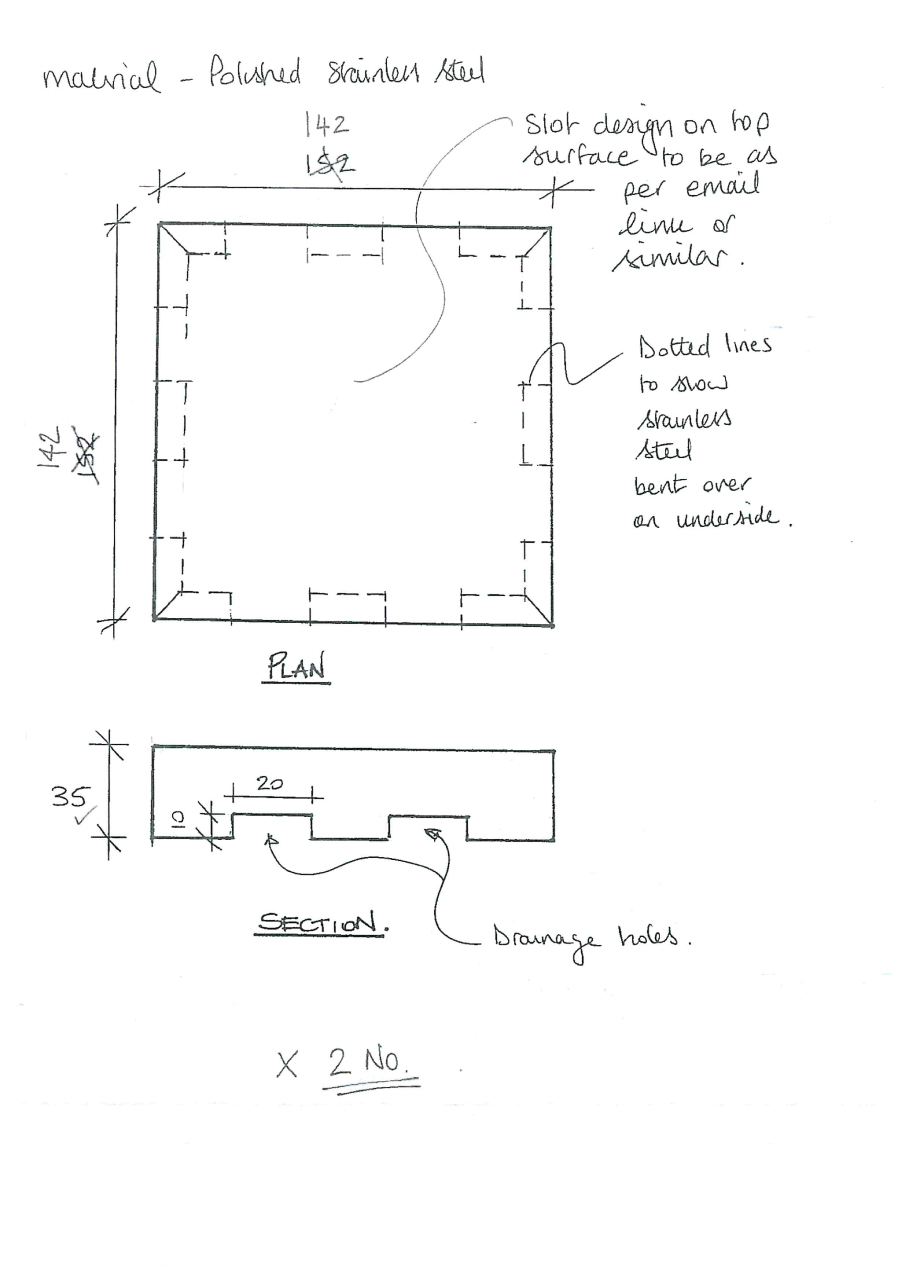 material - Polished Stainless Steel
142
152
Slot design on top
surface to be as
per email
link or
similar.
Dotted lines
to show
stainless
steel
bent over
on underside.
142
152
PLAN
35
20
10
SECTION.
Drainage holes.
X 2 No.